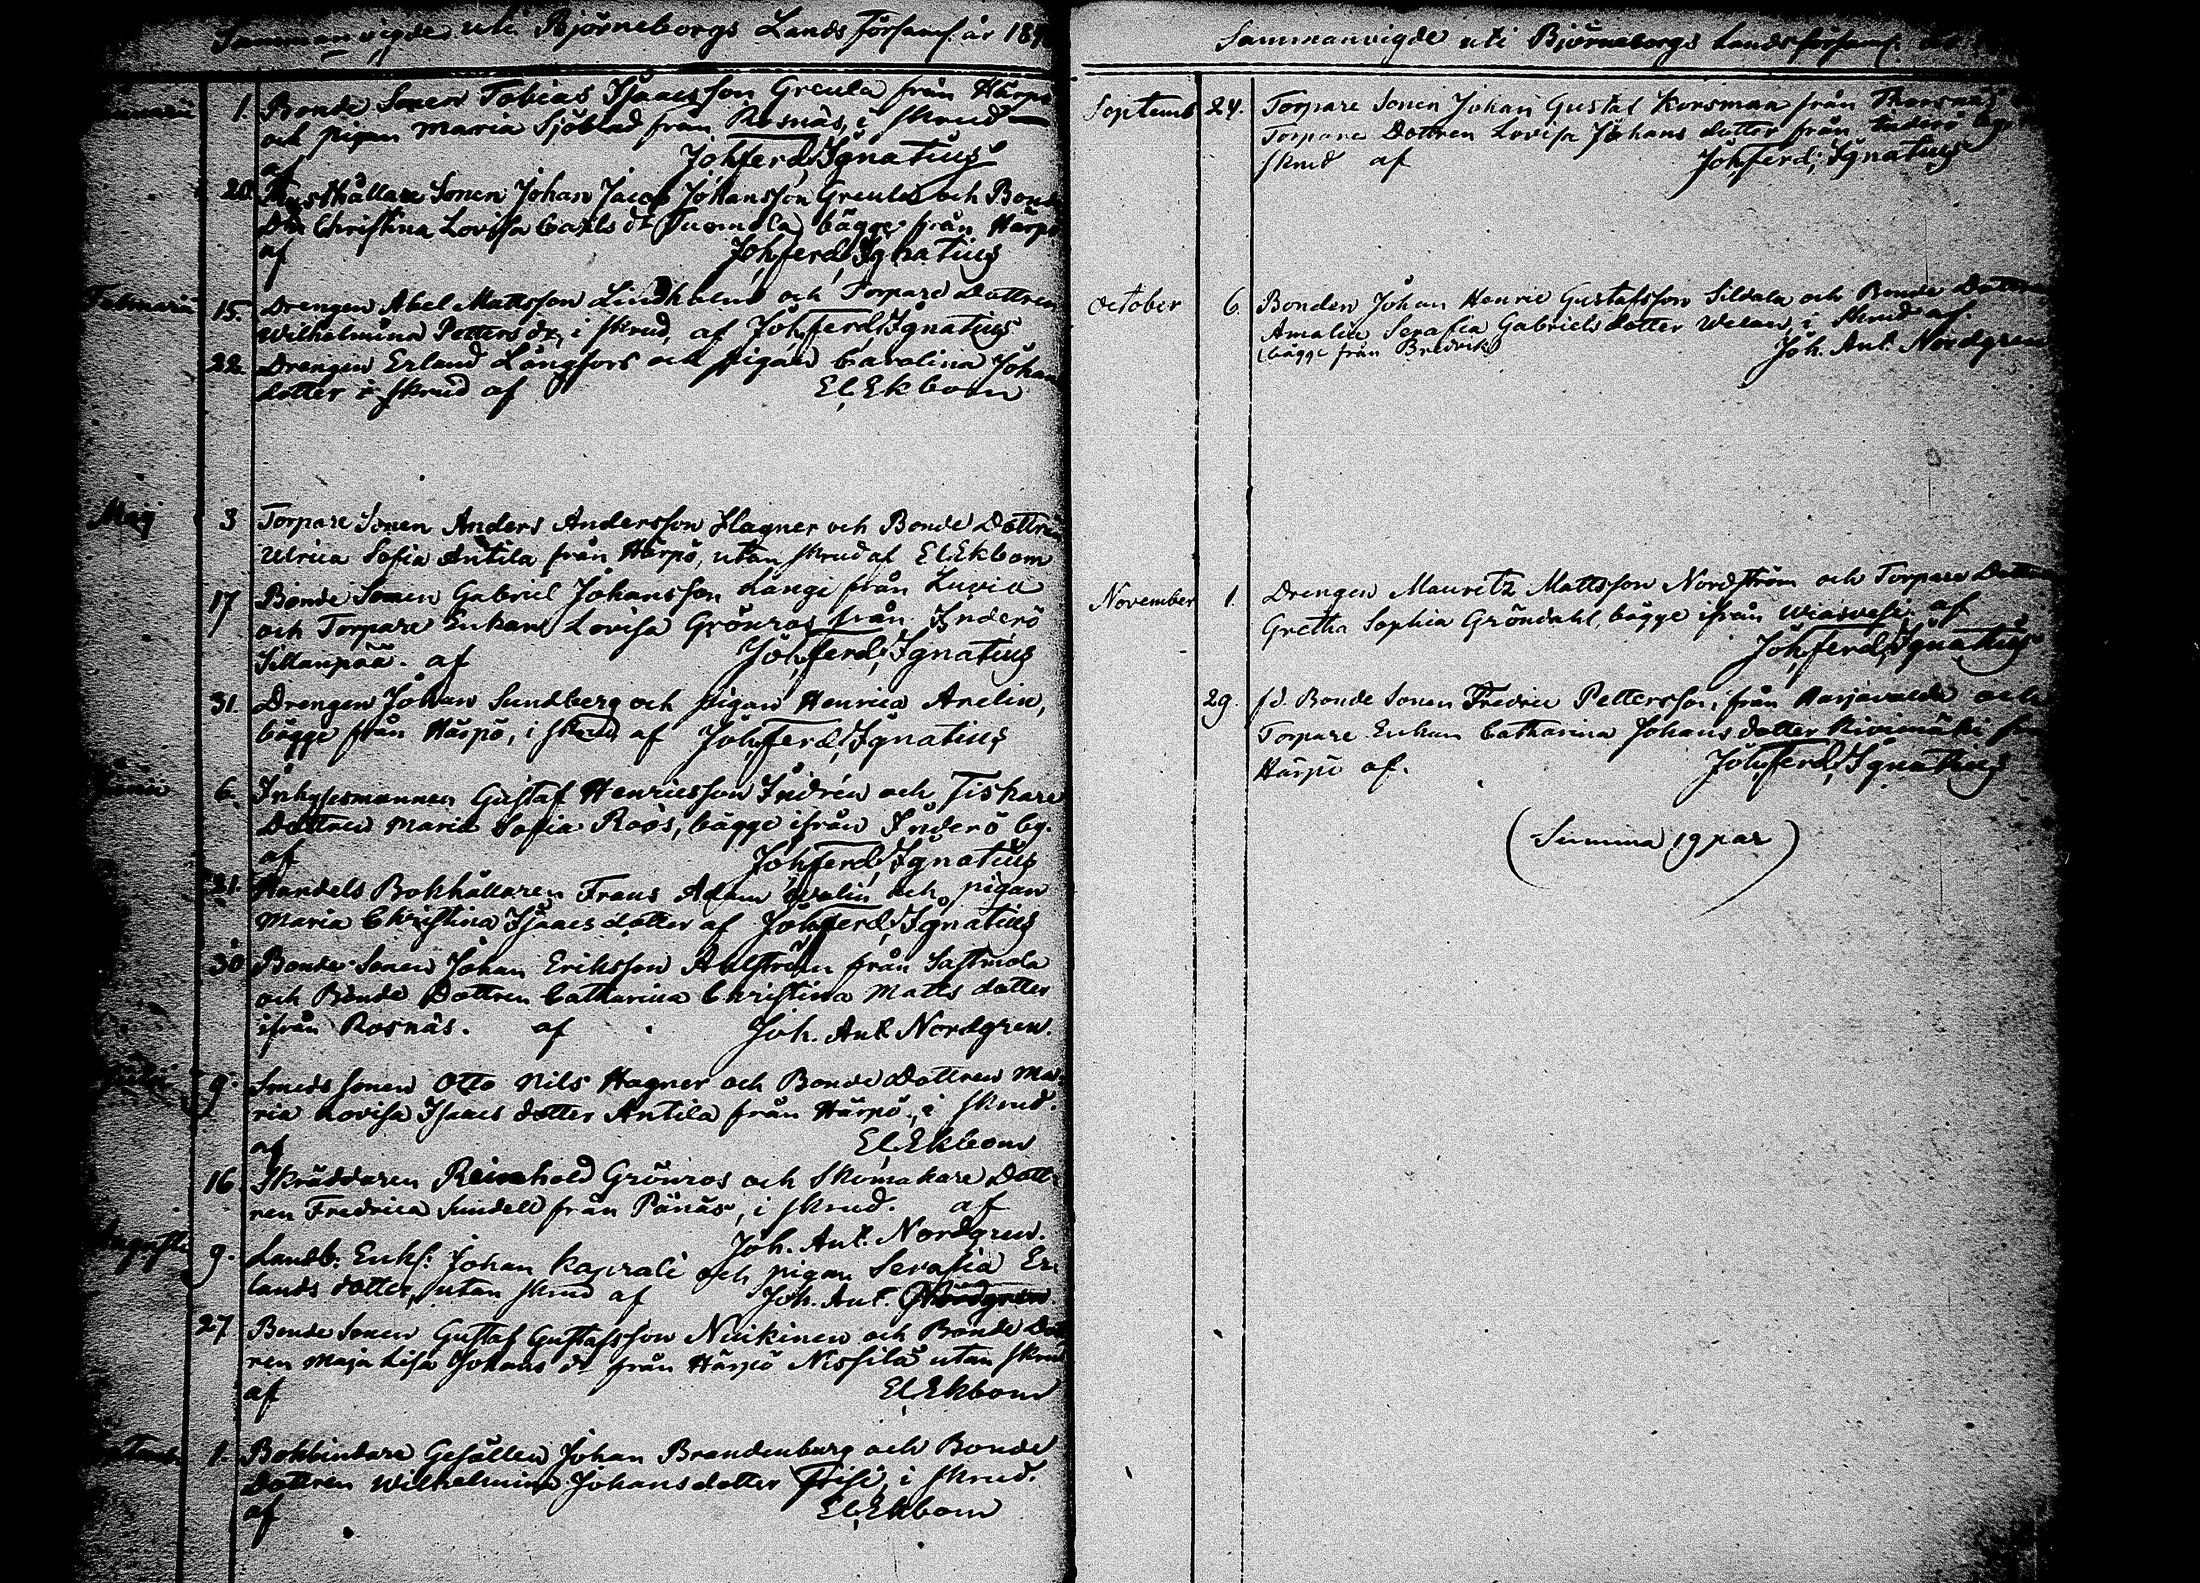 Sammanvigde uti Björneborgs Lands Församl. år 18
Januari 1. Bonde Sonen Tobias Isaacsson Greula från Härpö
och pigan Maria Sjöblad från Rosnäs, i skrud
af Joh. Ferd. Ignatius
20. Rusthållare Sonen Johan Jacob Johansson Greula och Bonde
Dtr Christina Lovisa Carls dr (Tuomola) bägge från Härpö
af Joh. Ferd. Ignatius
Februari 15. Drengen Abel Mattsson Lindholm och Torpare Dottren
Wilhelmina Petters dr, i skrud, af Joh. Ferd. Ignatius
22. Drengen Erland Långfors och pigan Carolina Johans
dotter i skrud af El. Ekbom
Maj 3 Torpare Sonen Anders Andersson Hagner och Bonde Dottren
Ulrica Sofia Antila från Härpö, utan skrud af El. Ekbom
17 Bonde Sonen Gabriel Johansson Langi från Luvia
och Torpare Enkan Lovisa Grönros från Inderö
Sillanpää. af Joh. Ferd. Ignatius
31. Drengen Johan Sundberg och pigan Henrica Arelin,
bägge från Härpö, i skrud af Joh. Ferd. Ignatius
Junii 6. Inhysesmannen Gustaf Henricsson Indrén och Fiskare
Dottren Maria Sofia Roos, bägge ifrån Inderö by.
af Joh. Ferd. Ignatius
21. Handels Bokhållaren Frans Adam och pigan
Maria Christina Isaacs dotter af Joh. Ferd. Ignatius
30 Bonde Sonen Johan Eriksson Ahlström från Sastmola
och Bonde Dottren Catharina Christina Matts dotter
ifrån Rosnäs. af Joh. Ant. Nordgren.
Julii 9. Smeds sonen Otto Nils Hagner och Bonde Dottren Ma-
ria Lovisa Isaacs dotter Antila från Härpö, i skrud.
af El. Ekbom
16. Skräddaren Reinhold Grönros och Skomakare Dott-
ren Fredrica Sundell från Pänäs, i skrud. af
Joh. Ant. Nordgren.
Augusti 9. Landb: Enkl: Johan Kaprali och pigan Serafia Er-
lands dotter, utan skrud af Joh. Ant. Nordgren.
27 Bonde Sonen Gustaf Gustafsson Nuikinen och Bonde Dott
ren Maja Lisa Johans dr från Härpö Nissilä utan skrud
af El. Ekbom
1. Bokbindare Gesällen Johan Brandenburg och Bonde
Dottren Wilhelmina Johansdotter Frisi, i skrud.
af El. Ekbom
Sammanvigde uti Björneborgs Landsförsaml. år
Septemb 24. Torpare Sonen Johan Gustaf Korsman från Thorsnäs
Torpare Dottren Lovisa Johans dotter från Inderö by
skrud af Joh. Ferd. Ignatius
October 6 Bonden Johan Henric Gustafsson Sildala och Bonde Dottren
Amalia Serafia Gabriels dotter i skrud af
(bägge från Bredvik) Joh. Ant. Nordgren
November 1. Drengen Mauritz Mattsson Nordström och Torpare Dottren
Gretha Sophia Gröndahl, bägge ifrån Wiasvesi. af
Joh. Ferd. Ignatius
29. fd. Bonde Sonen Fredric Pettersson, från Harjavalda och
Torpare Enkan Catharina Johans dotter Kivimäki från
Härpö af. Joh. Ferd. Ignatius
(Summa 19 par)